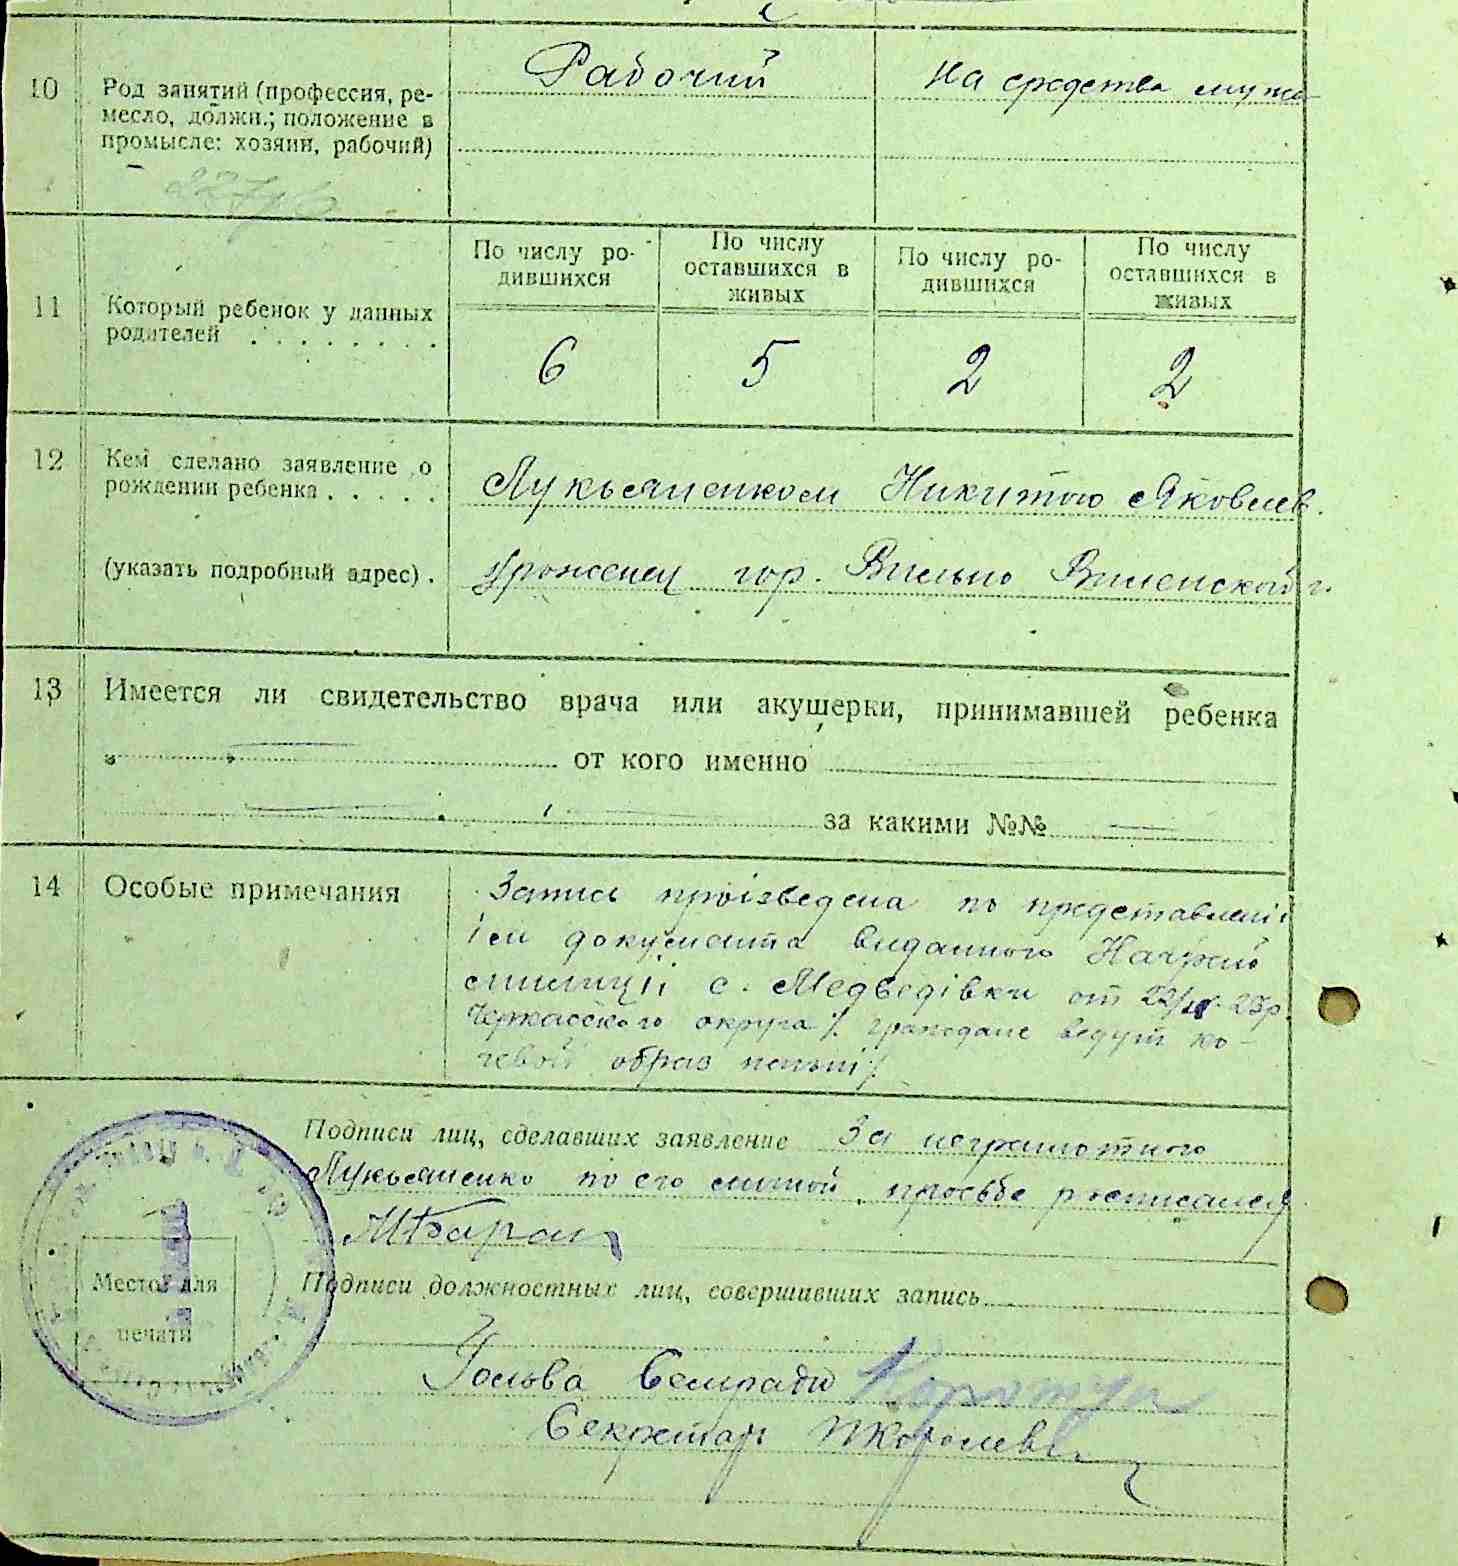 10
Род занятий (профессия, ре-
месло, должн.; положение в
промысле: хозяин, рабочий)
Рабочий
На средства мужа
11
Который ребенок у данных
родителей . . . . . . . .
По числу ро-
дившихся
По числу
оставшихся в
живых
По числу ро-
дившихся
По числу
оставшихся в
живых
6
5
2
2
12
Кем сделано заявление о
рождении ребенка . . . . .
(указать подробный адрес) .
Лукьяненком Никитою Яковлев.
уроженец гор. Вильно Виленской г.
13
Имеется ли свидетельство врача или акушерки, принимавшей ребенка
от кого именно
за какими №№
14
Особые примечания
Запись проізведена по представлені
ім документа виданного Начрай
милиціі с. Медведівки от 22/ 23р.
Черкасского округа /. граждане ведут ко-
чевой образ жизні /.
Подписи лиц, сделавших заявление За неграмотного
Лукьяненко по его личной просьбе росписался
МБаран
Место для
печати
Подписи должностных лиц, совершивших запись
Голова Сельради
Секретарь